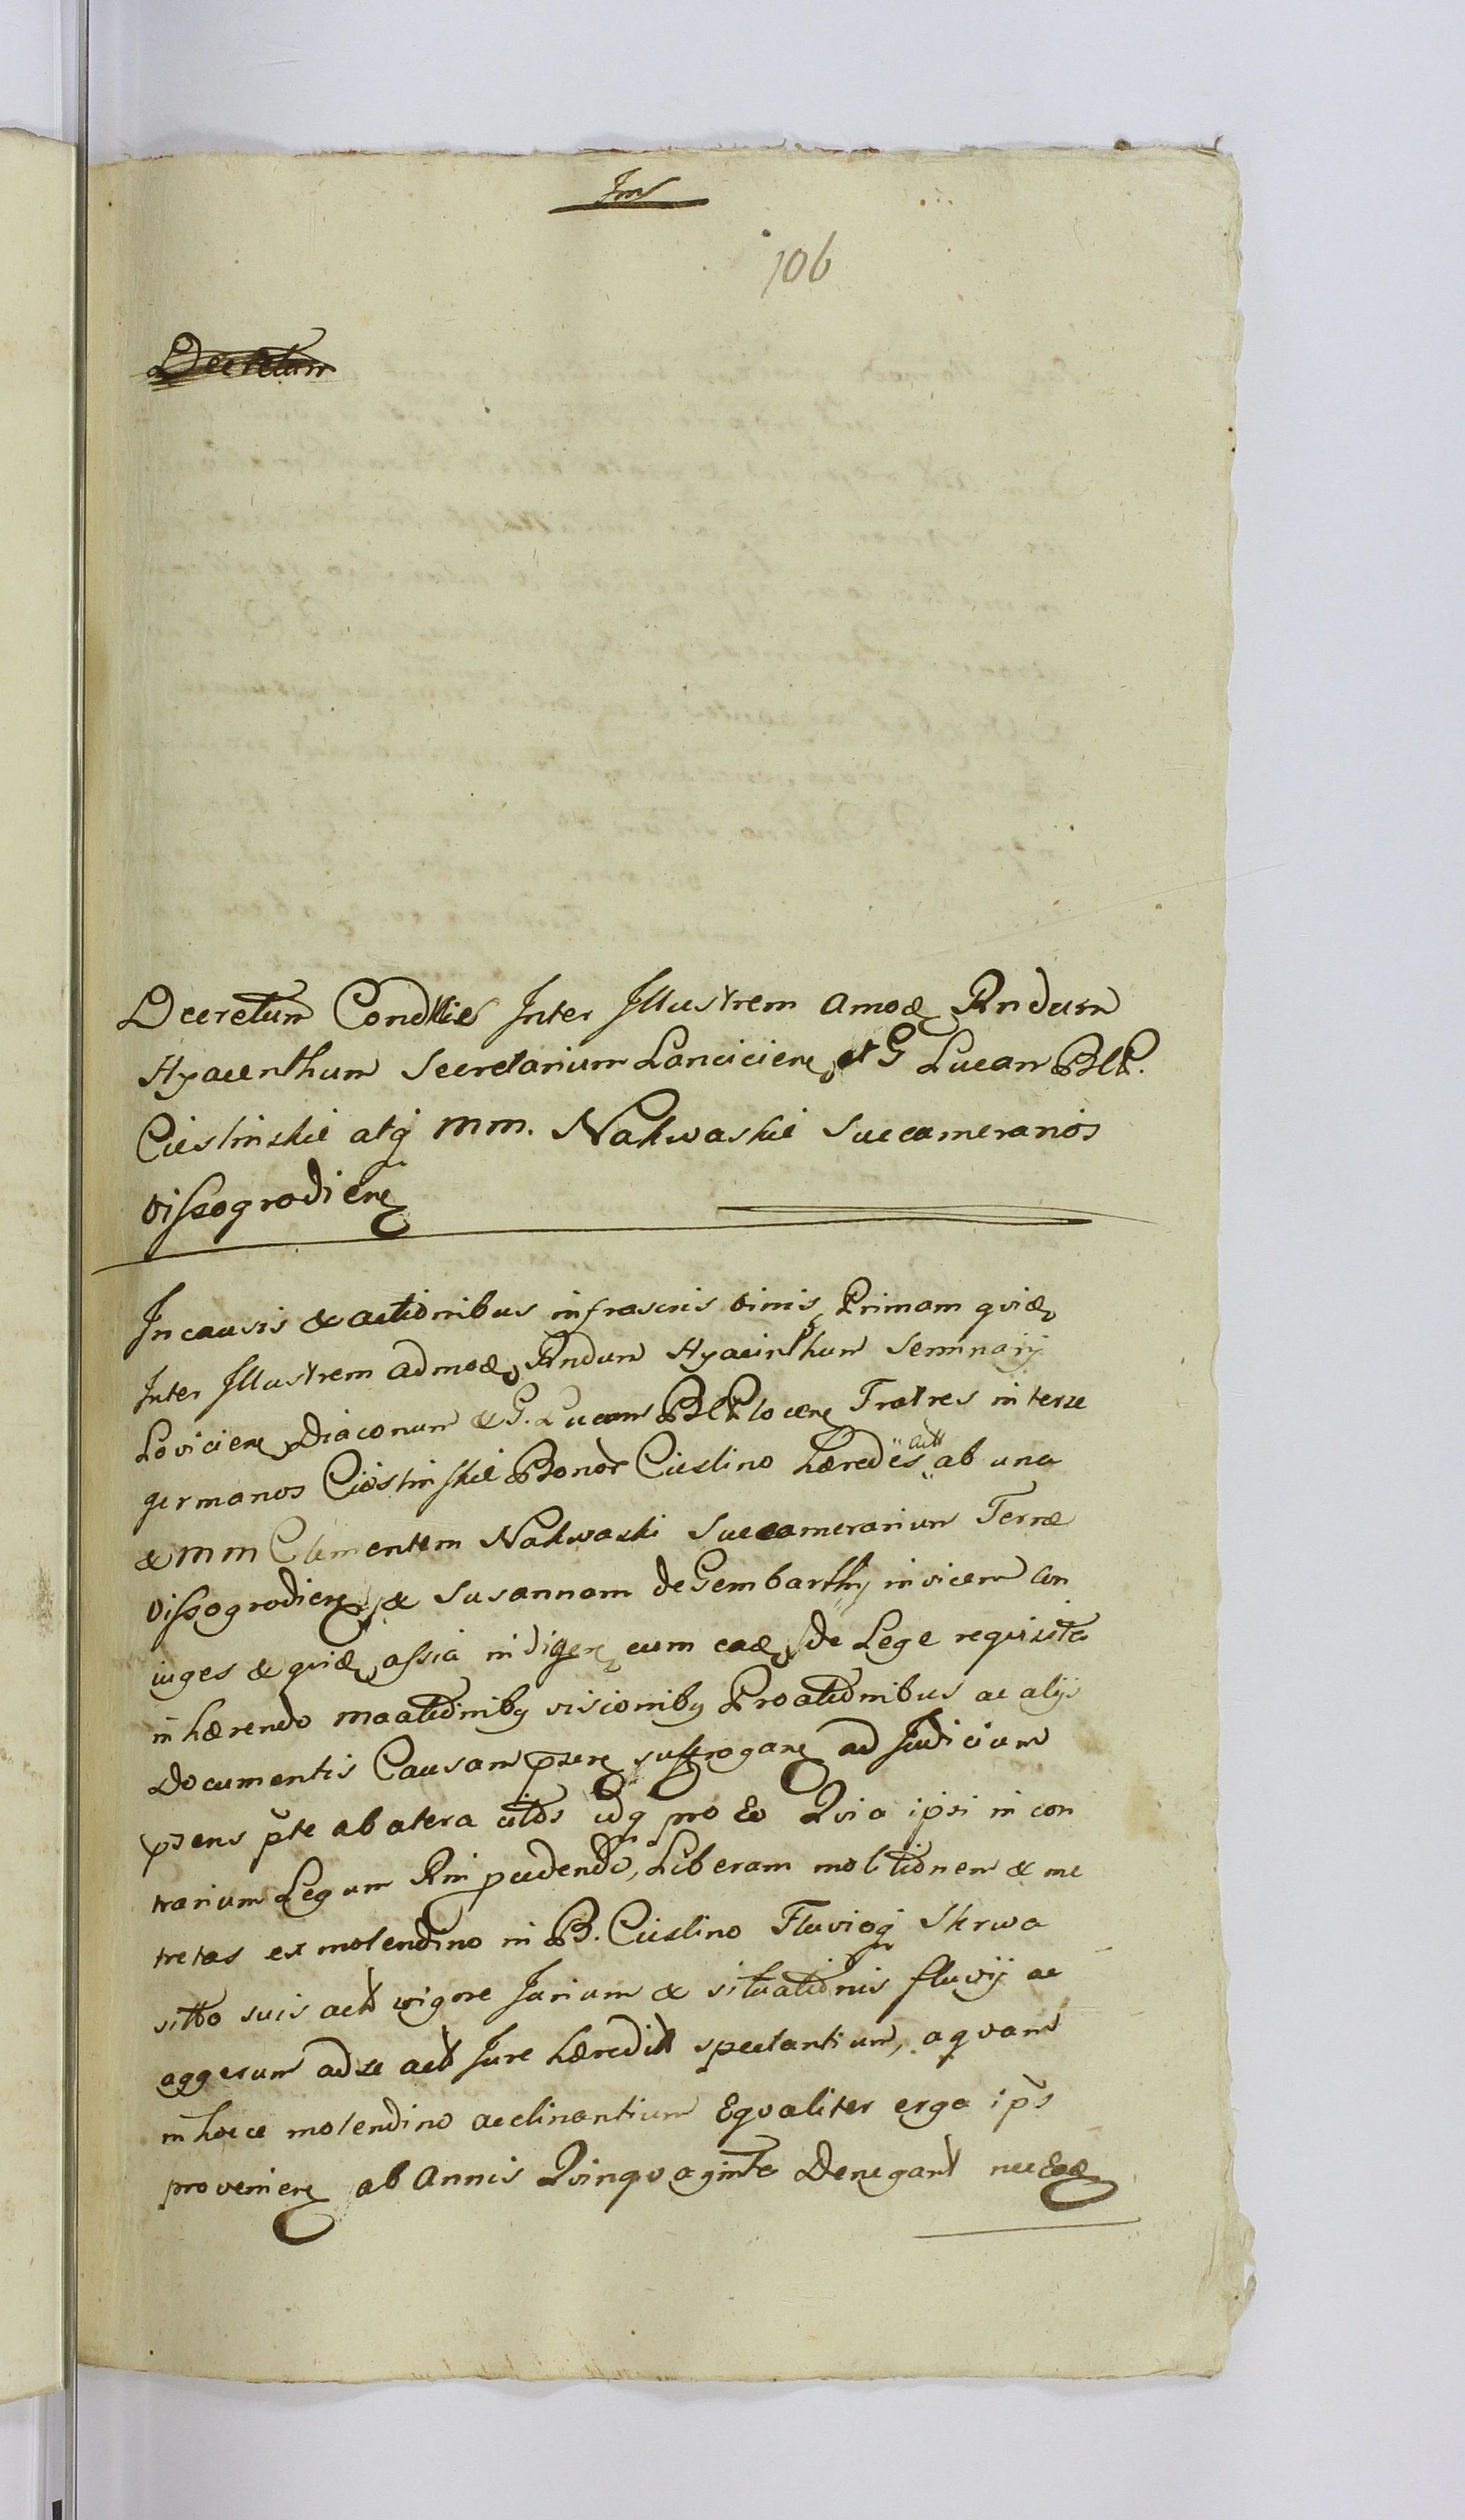 106
Decretum
Decretum Condtle Inter Illustrem Amodq Rndum
Hyacynthum Secretarium Lancicienq et G Lucam BHP.
Cieslinskie atq mm. Nakwaskie Succameranios
Vissogrodienq
In causis & actionibus infrascris Primam quidq
Inter Illustrem admodq Rndum Hyacinthum Seminarij
Lovicienq Diaconum & G. Lucam Fratres inter se
germanos Cieslinskie Bonor Cieslino hæredes act ab una
& mm Clementem Nakwaski Succamerarium Terræ
Vissogrodienq & Susannam de Gembarthy invicem Con
iuges & quidq assia indigenq cum eadq de Lege requisita
inhærendo visionibq ac alijs
Documentis Causam psenq suffroganq ad Judicium
psens pte ab altera citos idq pro Eo Quia ipsi in con
trarium Legum Rni pcudendo, Liberam molitionem & me
tretas ex molendino in B. Cieslino Fluvioq Skrwa
sitto suis actt vigore Jurium & situationis fluvij ac
aggerum ad se actt Jure hæreditt spectantium, aquam
in hocce molendino acclinantium Eqvaliter erga ips
provenienq ab Annis Quinquaginta Denegant nec Eadq